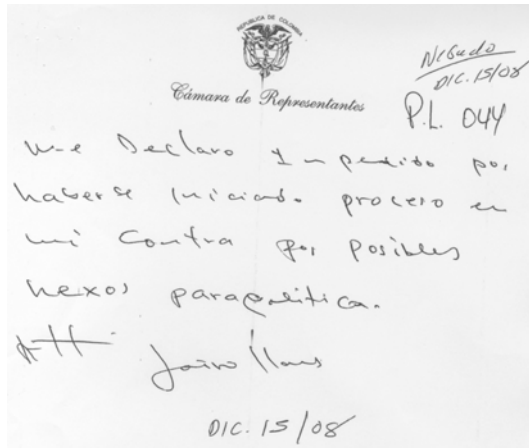 REPUBLICA DE COLOMBIA
Cámara de Representantes
Negado
DIC. 15/08
P.L. 044
me Declaro Impedido por
haberse iniciado proceso en
mi contra por posibles
nexos parapolitica.
Att
Jairo Llano
DIC. 15/08